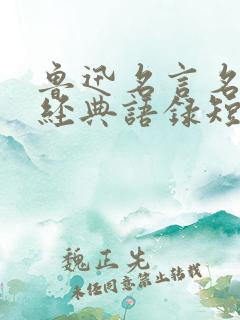 魯迅名言名
經典語錄短
魏正先
未經同意禁止轉載